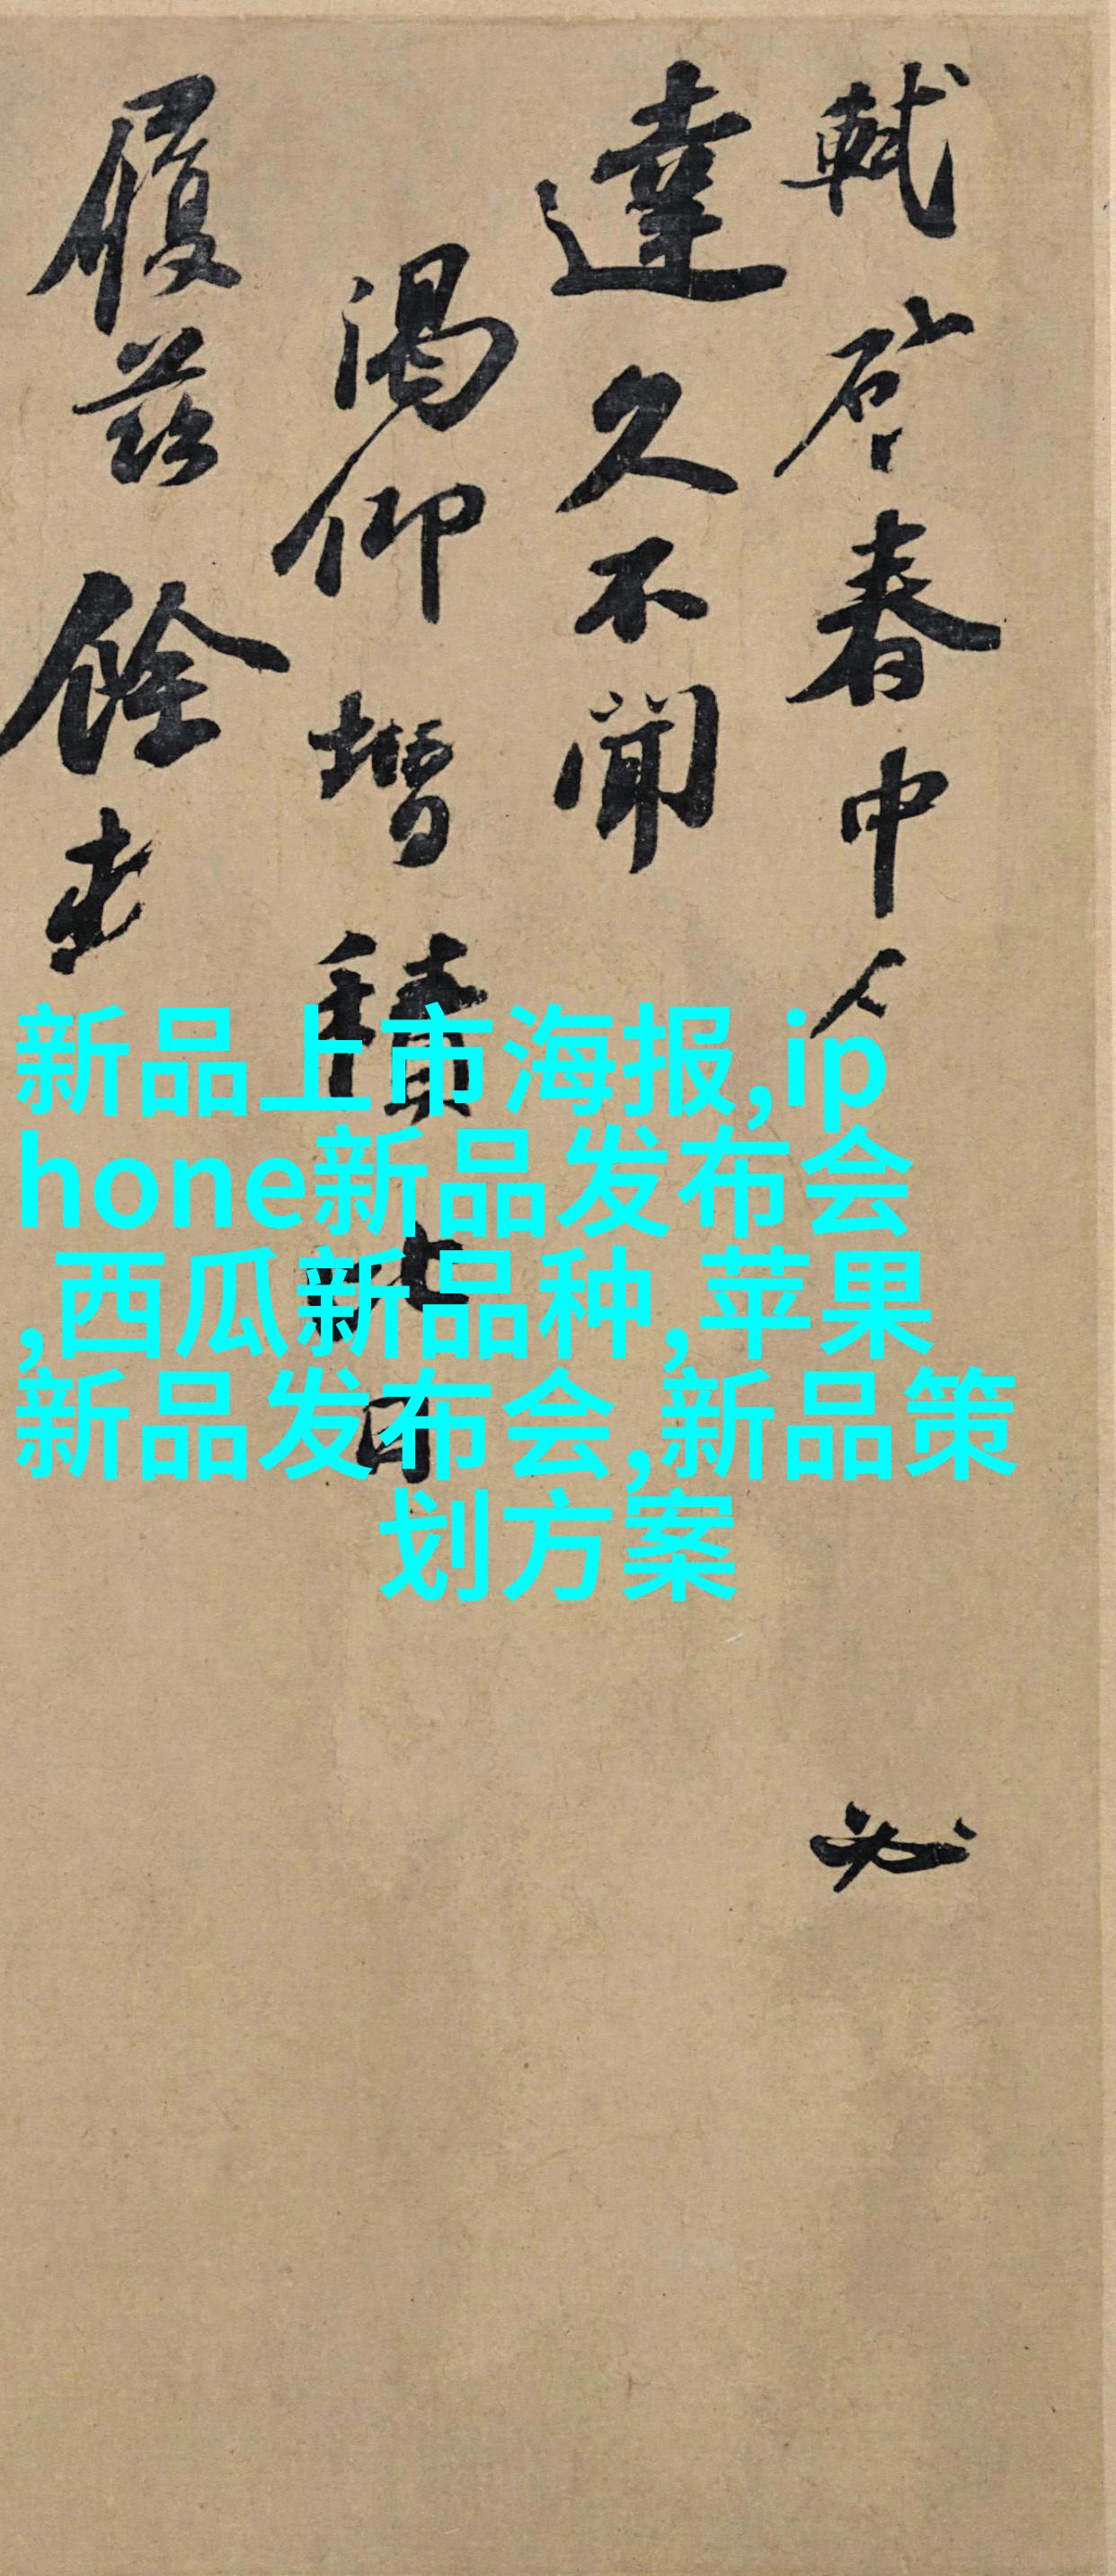 軾啓春中人 必
達久不聞
渴仰增積比日
履茲餘
新品上市海报,ip
hone新品发布会
,西瓜新品种,苹果
新品发布会,新品策
划方案